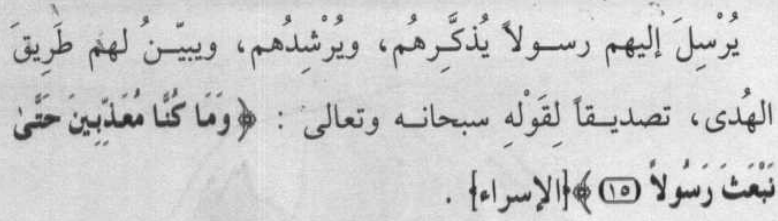 يُرْسِلَ إليهم رسولاً يُذكَّرهُم، ويُرْشِدُهم، ويبيّنُ لهم طَرِيقَ
الهُدى، تصديقاً لِقَوْلهِ سبحانه وتعالى : ﴿وَمَا كُنَّا مُعَذِّبِينَ حَتَّىٰ
نَبْعَثَ رَسُولاً (١٥)﴾ [الإسراء] .